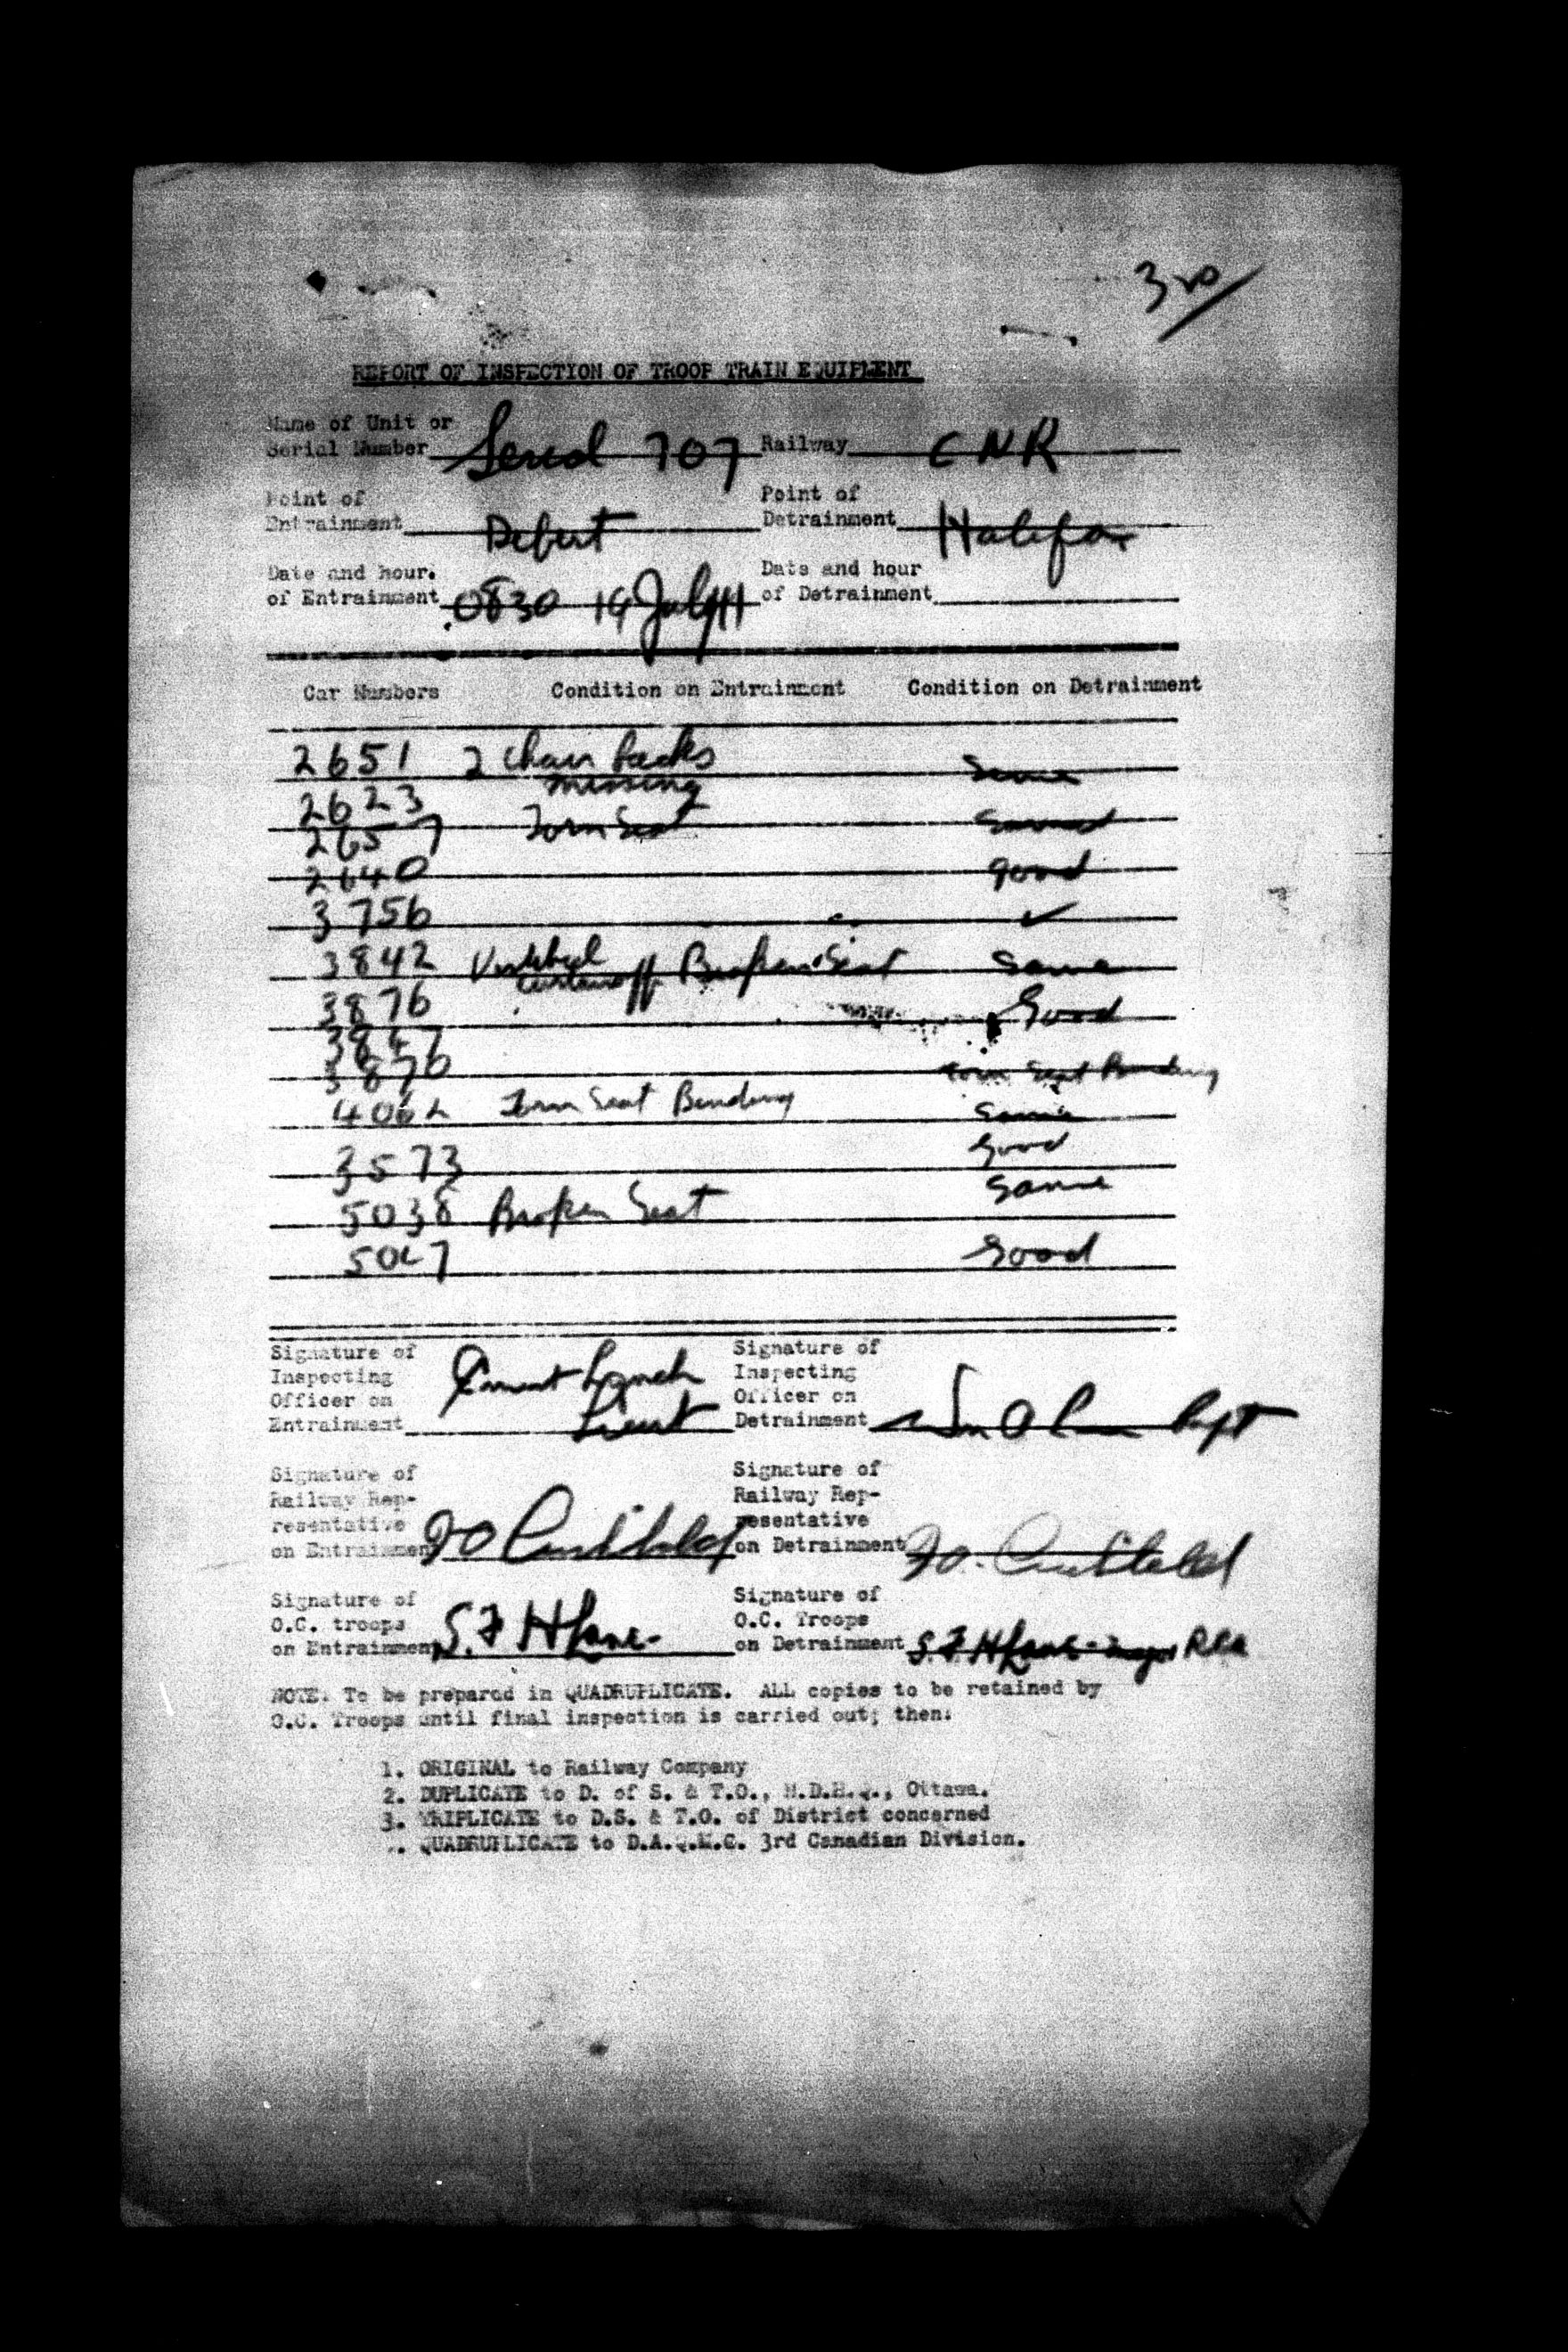 3rd
REPORT OF INSPECTION OF TROOP TRAIN EQUIPMENT
Name of Unit or Serial Number Serial 707 Railway CNR
Point of Entrainment Debert Point of Detrainment Halifax
Date and hour. of Entrainment 0830 19 July 41 Date and hour of Detrainment
Car Numbers Condition on Entrainment Condition on Detrainment
2651 2 Chair backs missing Same
2623
2657 Torn Seat
2640 good
3756 ✓
3842 Broken Seat Same
3876 Good
3876 torn Seat Binding
4062 Torn Seat Binding Same
3573 Good
5038 Broken Seat Same
5047 Good
Signature of Inspecting Officer on Entrainment Lynch Lieut
Signature of Inspecting Officer on Detrainment Capt
Signature of Railway Representative on Entrainment
Signature of Railway Representative on Detrainment
Signature of O.C. troops on Entrainment S. F. H Lane
Signature of O.C. Troops on Detrainment S. F. H Lane - Major RCA
NOTE: To be prepared in QUADRUPLICATE. ALL copies to be retained by
O.C. Troops until final inspection is carried out; then:
1. ORIGINAL to Railway Company
2. DUPLICATE to D. of S. & T.O., N.D.H.Q., Ottawa.
3. TRIPLICATE to D.S. & T.O. of District concerned
4. QUADRUPLICATE to D.A.Q.M.G. 3rd Canadian Division.